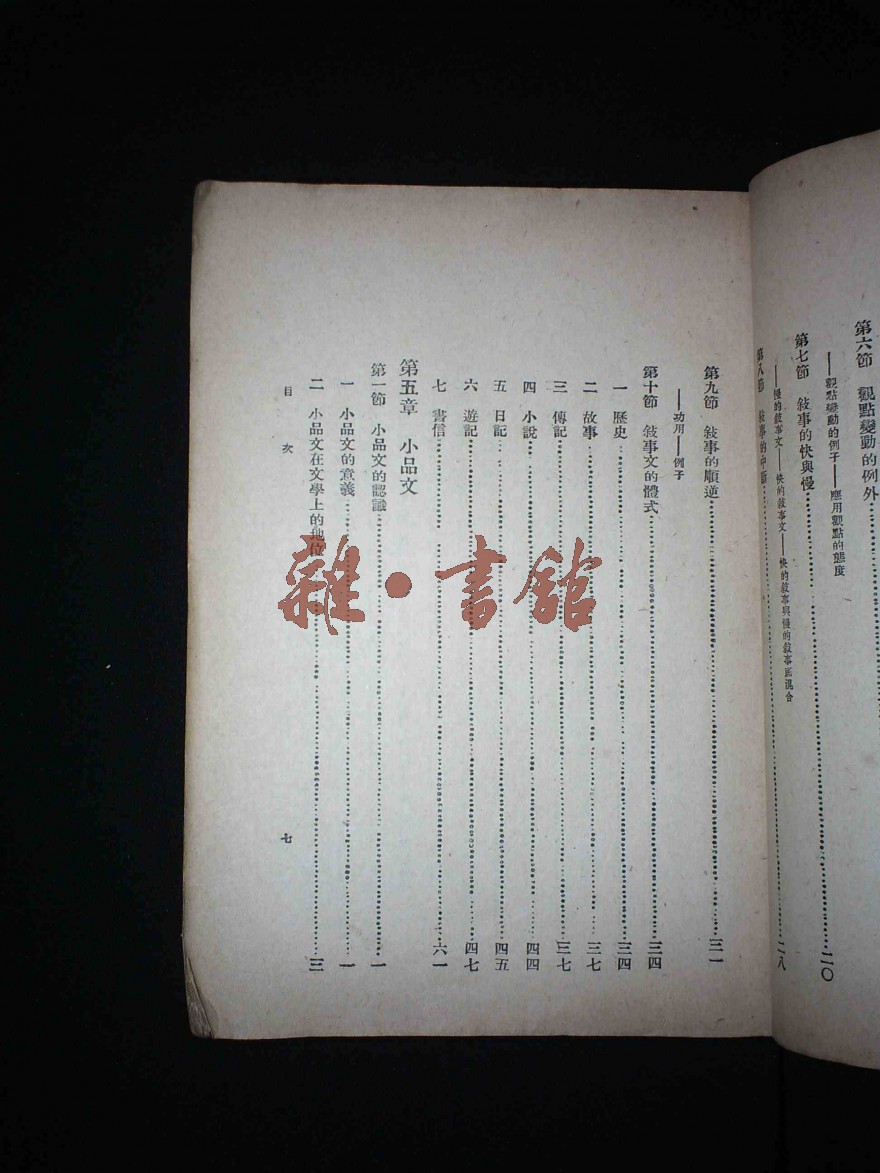 第六節　觀點變動的例外
——觀點變動的例子——應用觀點的態度
第七節　敍事的快與慢……二〇
——慢的敍事文——快的敍事文——快的敍事與慢的敍事底混合
第八節　敍事的中斷……二八
第九節　敍事的順逆……三一
——功用——例子
第十節　敍事文的體式……三四
一　歷史……三四
二　故事……三七
三　傳記……三七
四　小說……四四
五　日記……四五
六　遊記……四七
七　書信……六一
第五章　小品文
第一節　小品文的認識……一
一　小品文的意義……一
二　小品文在文學上的地位……三
目次
七
雜·書館